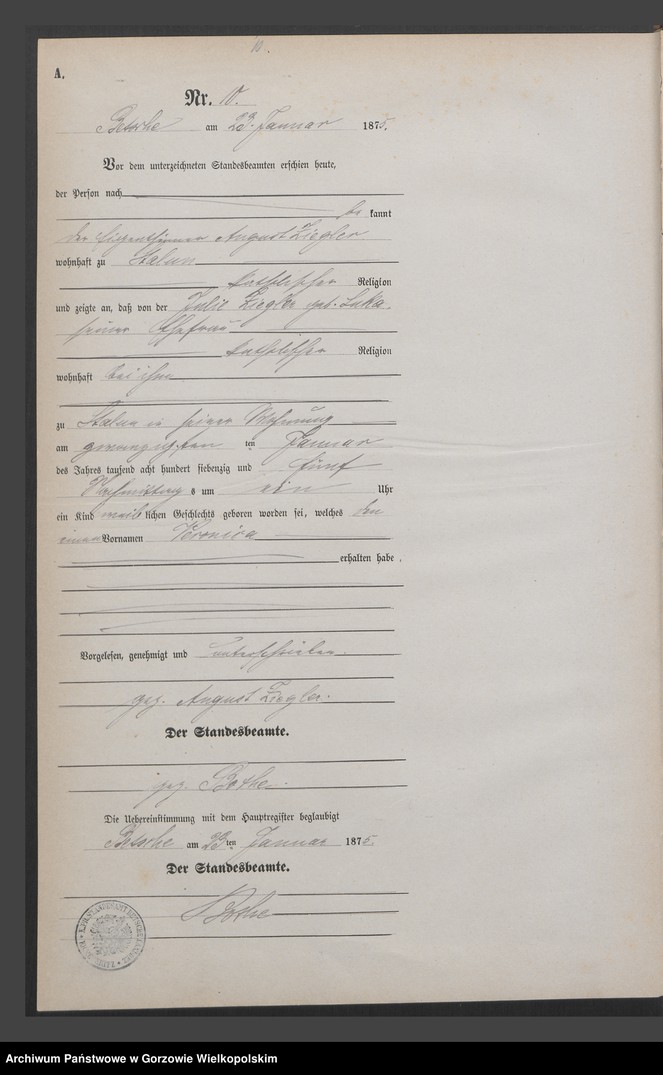 10.
A.
Nr. 10.
Betsche am 23. Januar 1875.
Vor dem unterzeichneten Standesbeamten erschien heute,
der Person nach
be kannt
der Eigenthümer August Ziegler
wohnhaft zu Stalun
katholischer Religion
und zeigte an, daß von der Julie Ziegler geb. Luka,
seiner Ehefrau
katholischer Religion
wohnhaft bei ihm
zu Stalun in seiner Wohnung
am zwanzigsten ten Januar
des Jahres tausend acht hundert siebenzig und fünf
Nachmittag s um ein Uhr
ein Kind weib lichen Geschlechts geboren worden sei, welches den
einen Vornamen Veronica
erhalten habe.
Vorgelesen, genehmigt und unterschrieben.
gez. August Ziegler.
Der Standesbeamte.
gez. Bothe.
Die Uebereinstimmung mit dem Hauptregister beglaubigt
Betsche am 23ten Januar 1875.
Der Standesbeamte.
Bothe
Archiwum Państwowe w Gorzowie Wielkopolskim